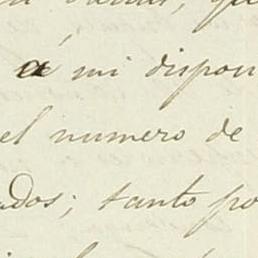 á mi dispon
el numero de
ados; tanto po